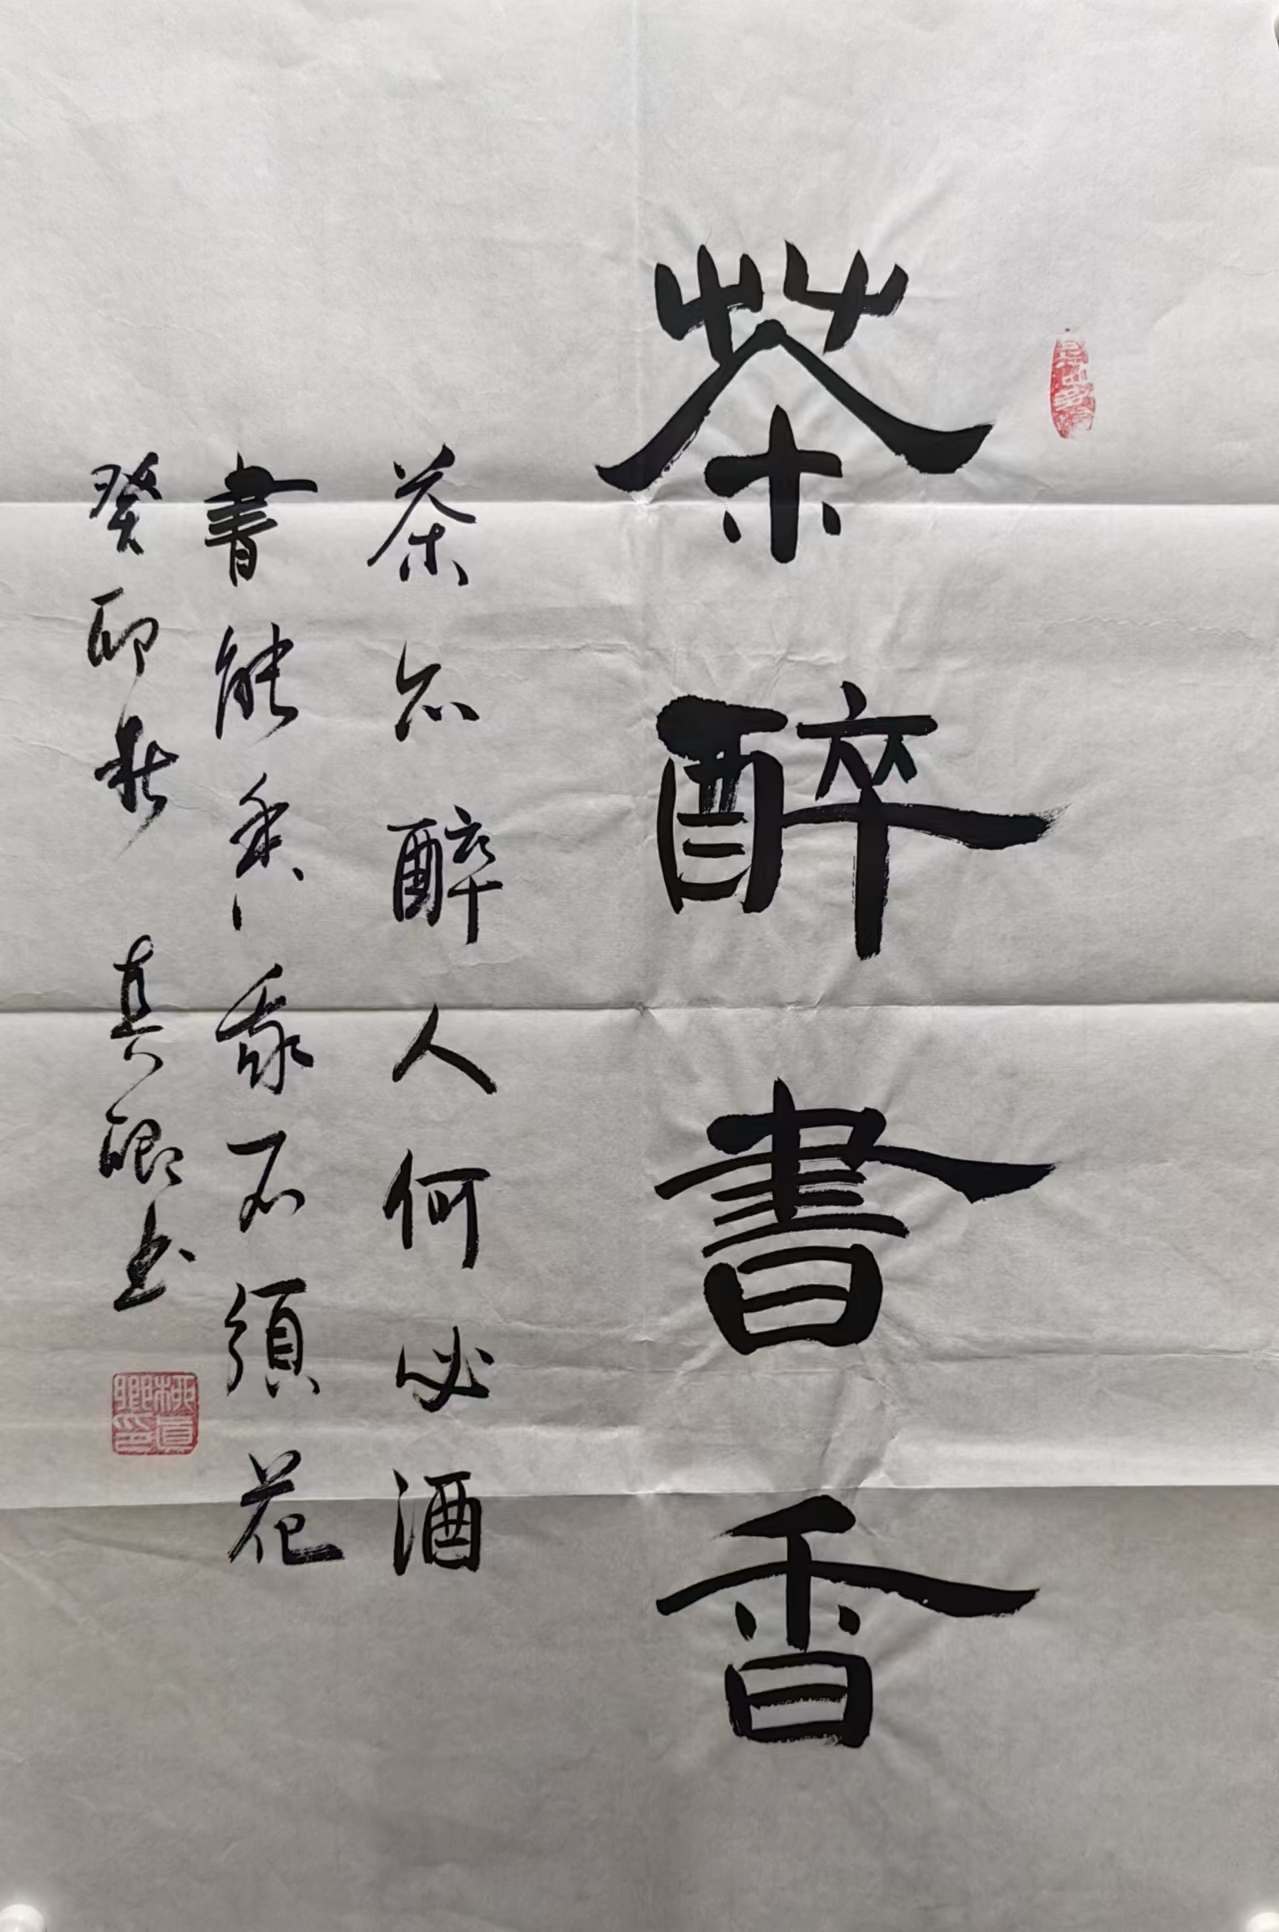 茶醉書香
茶亦醉人何必酒
書能香我不須花
癸卯秋 真卿书